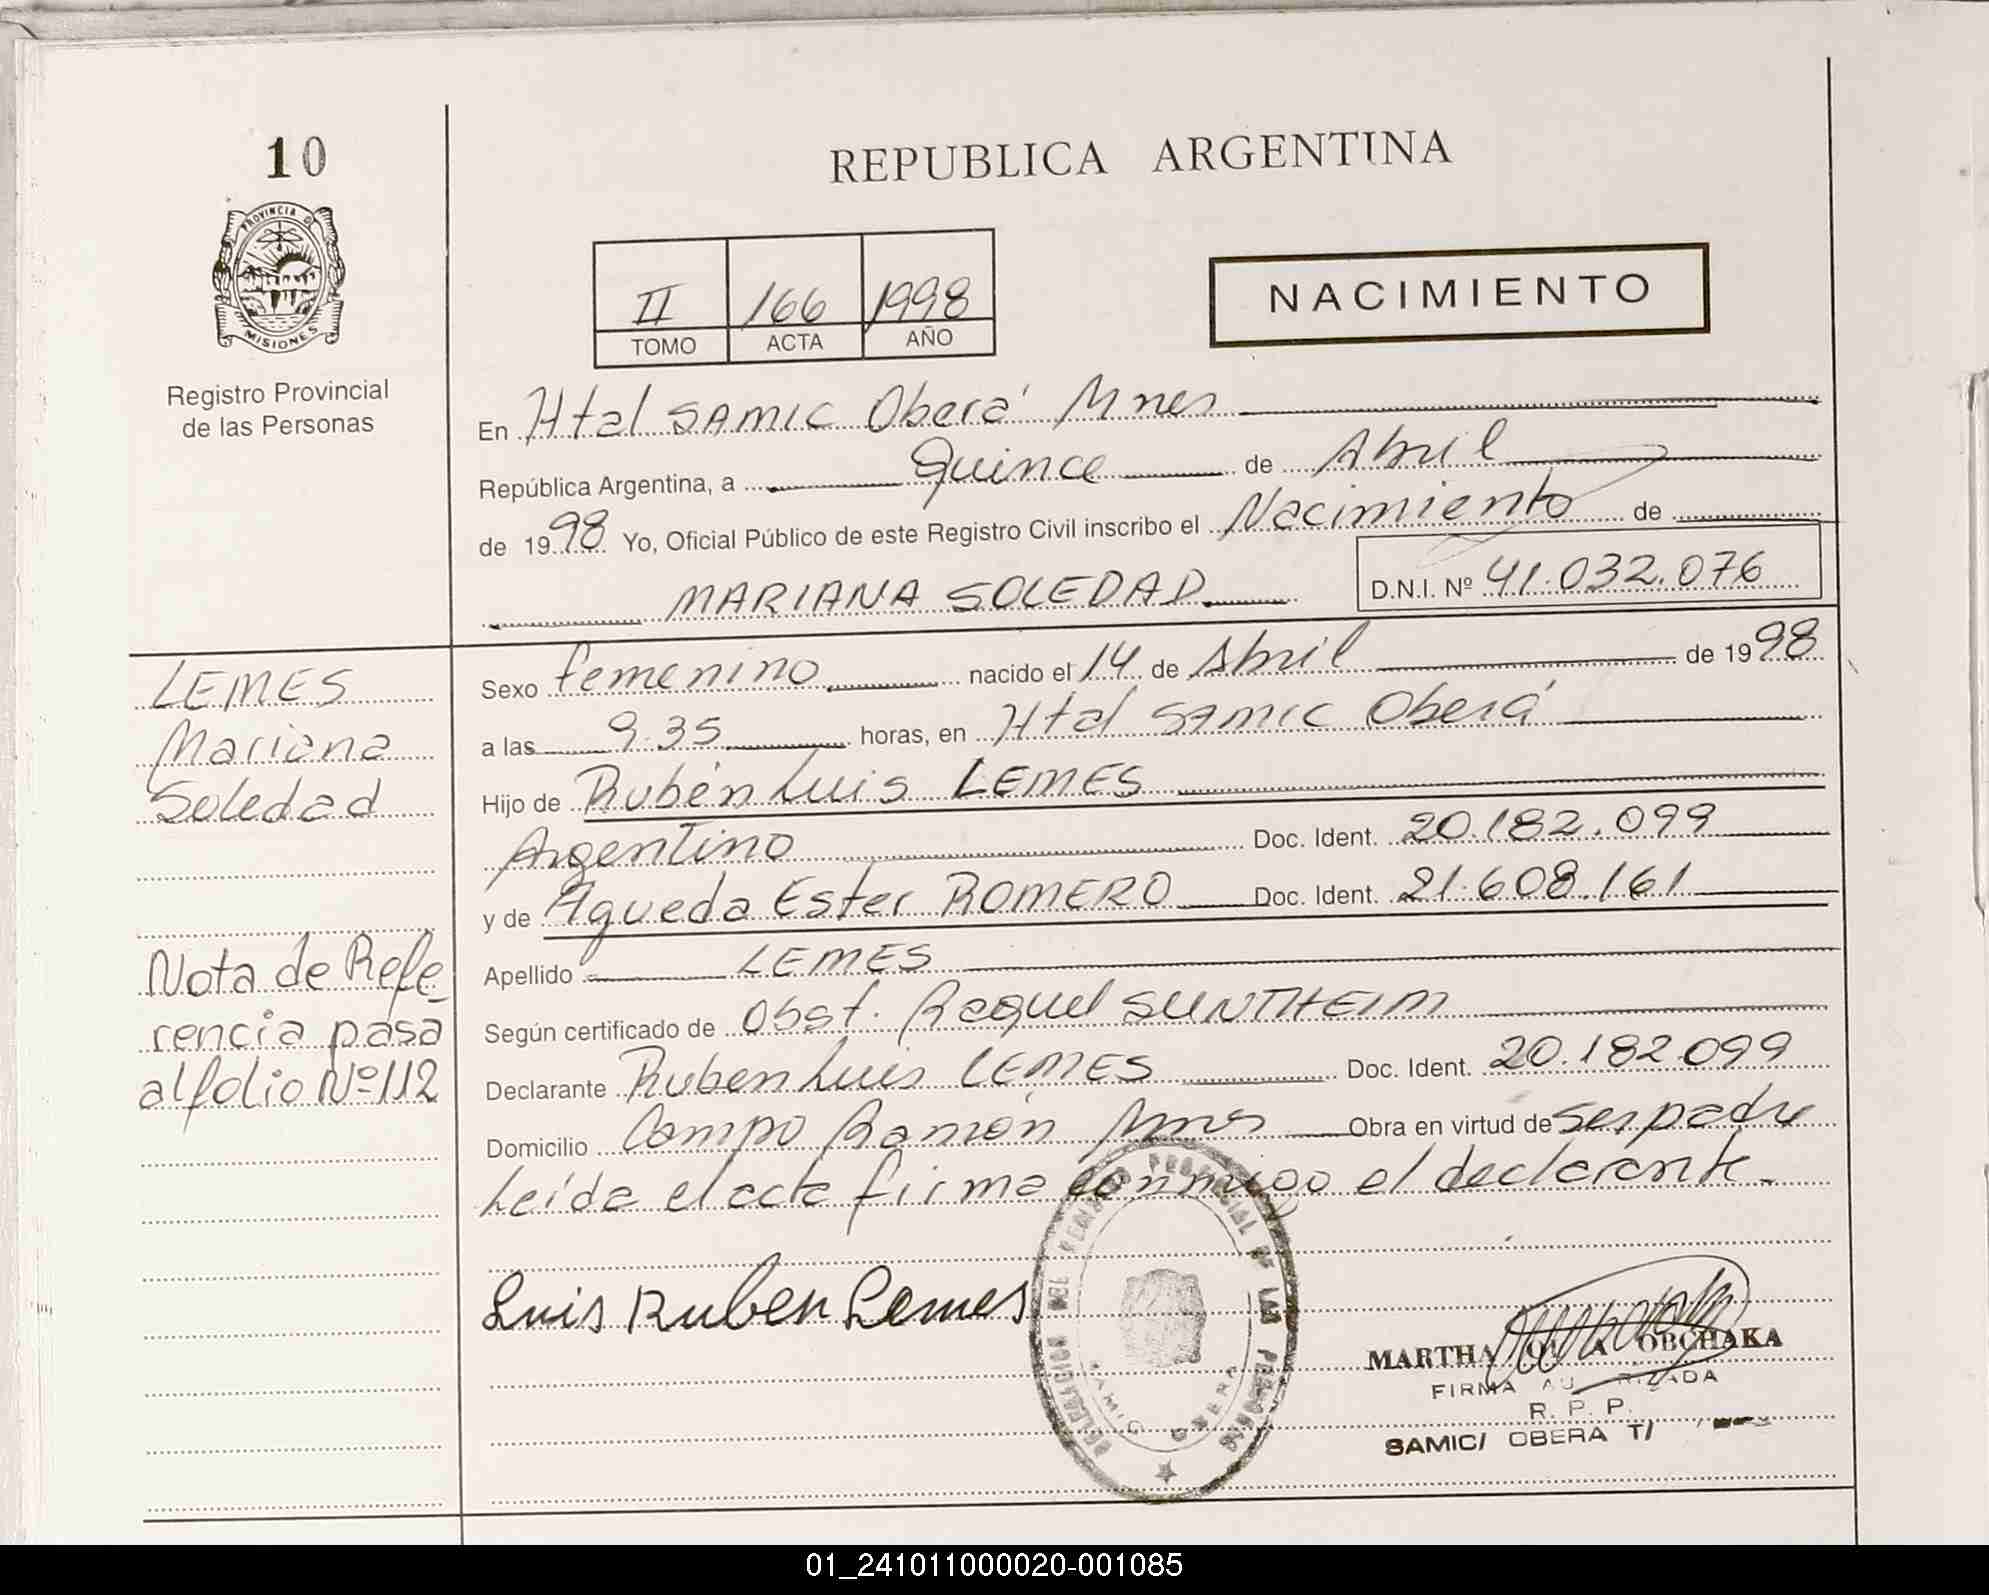 10
PROVINCIA DE
MISIONES
Registro Provincial
de las Personas
REPUBLICA ARGENTINA
II 166 1998
TOMO ACTA AÑO
NACIMIENTO
En Htal SAMIC Oberá Mnes
República Argentina, a Quince de Abril
de 1998 Yo, Oficial Público de este Registro Civil inscribo el Nacimiento de
MARIANA SOLEDAD D.N.I. Nº 41.032.076
LEMES
Mariana
Soledad
Sexo femenino nacido el 14 de Abril de 1998
a las 9.35 horas, en Htal SAMIC Oberá
Hijo de Rubén Luis LEMES
Argentino Doc. Ident. 20.182.099
y de Agueda Ester ROMERO Doc. Ident. 21.608.161
Nota de Refe_
rencia pasa
al folio Nº 112
Apellido LEMES
Según certificado de Obst. Raquel SUNTHEIM
Declarante Ruben Luis LEMES Doc. Ident. 20.182.099
Domicilio Campo Ramón Mnes Obra en virtud de ser padre
Leída el acta firma conmigo el declarante.
Luis Ruben Lemes
DELEGACION DEL REGISTRO PROVINCIAL DE LAS PERSONAS
SAMIC OBERA
MARTHA OBCHAKA
FIRMA AUTORIZADA
R. P. P.
SAMIC/ OBERA T/
01_241011000020-001085